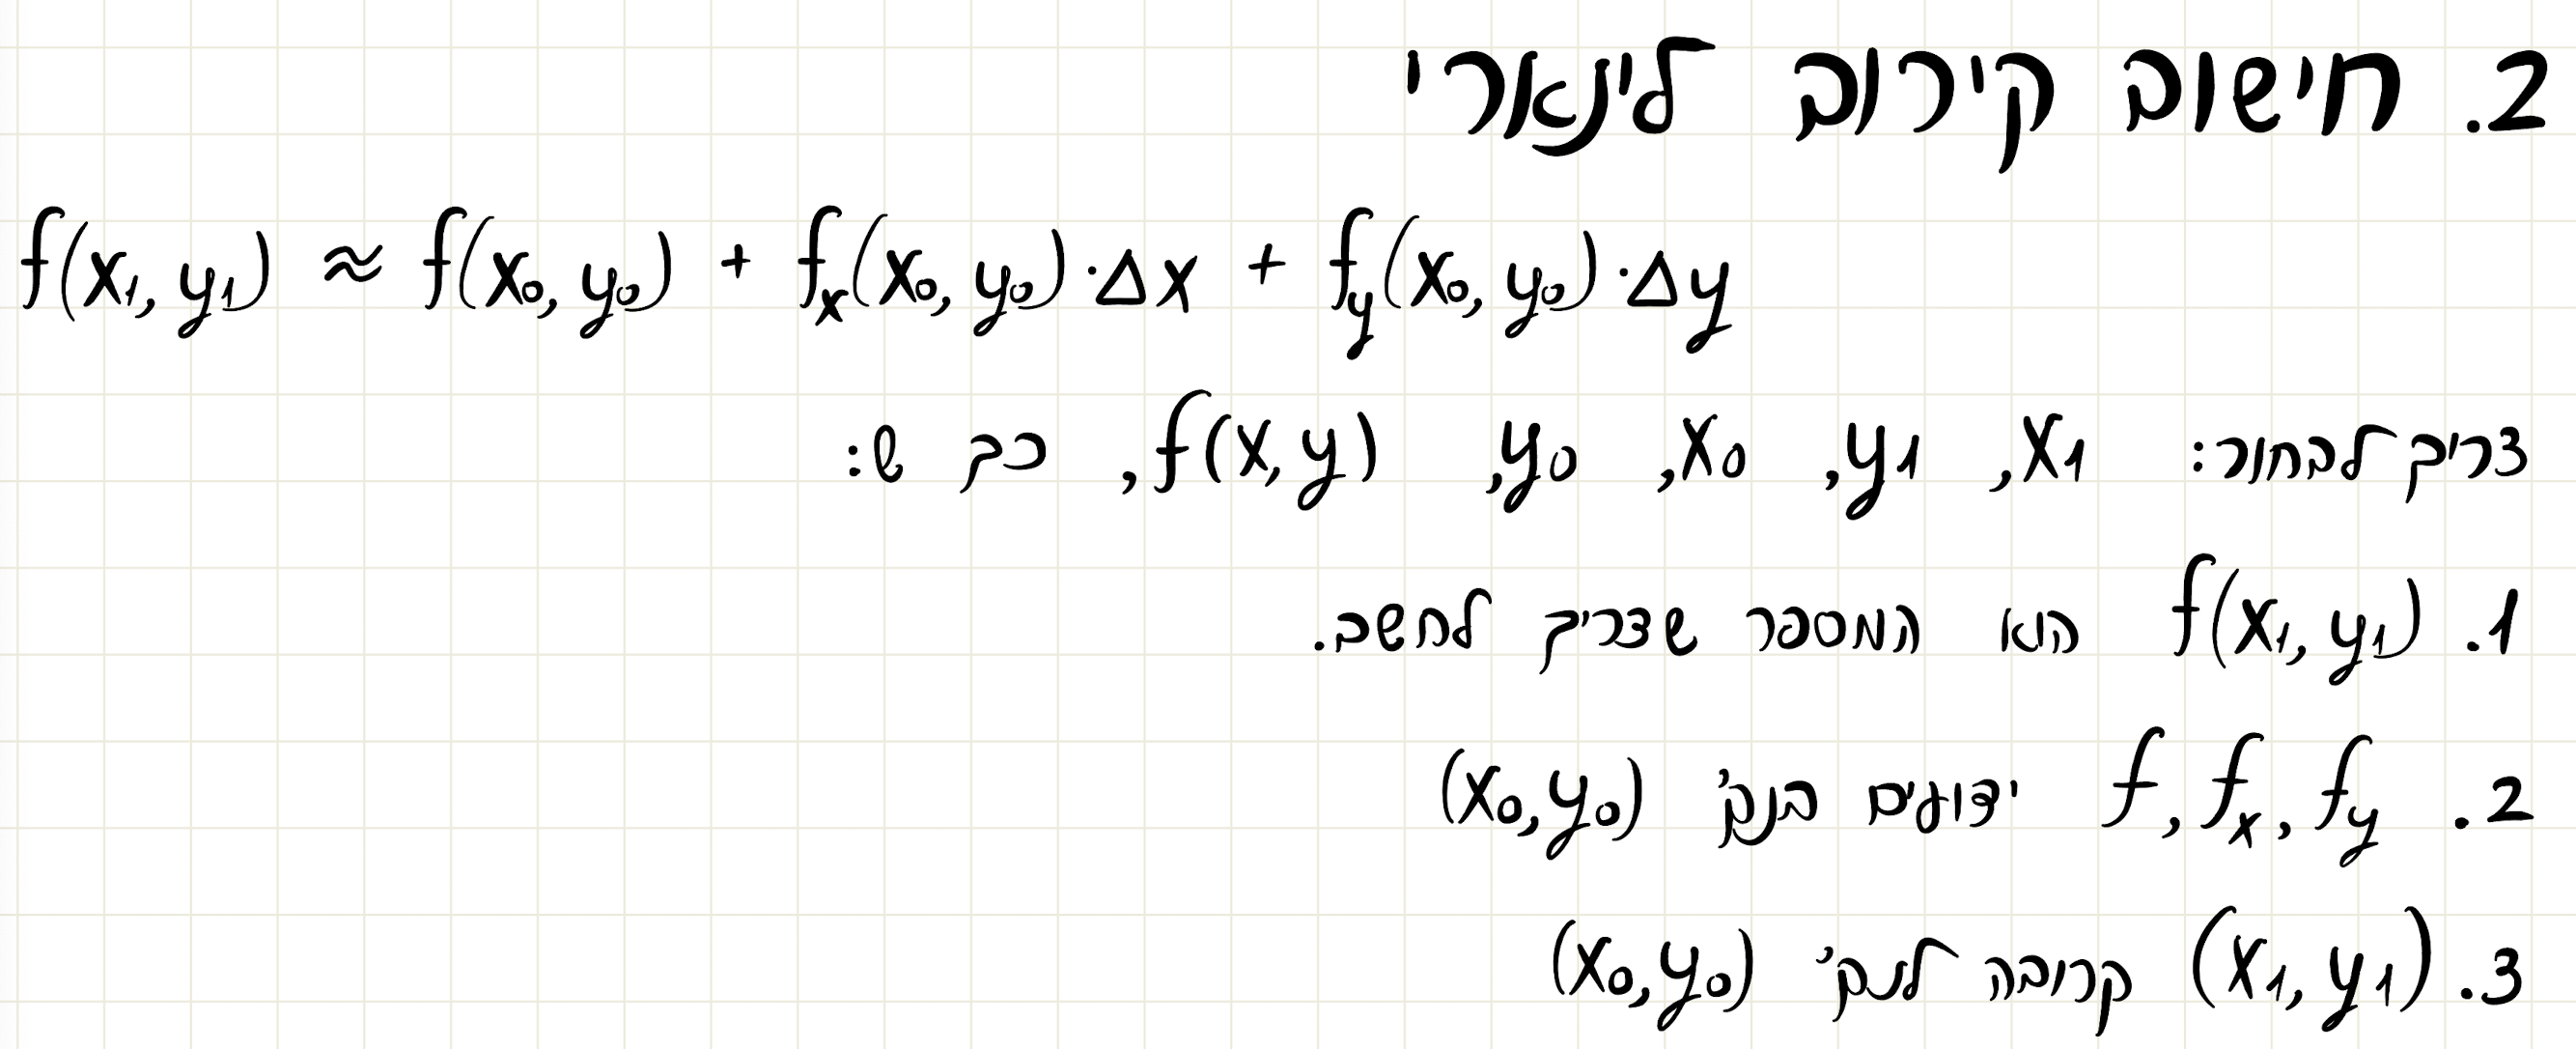 2. חישוב קירוב לינארי
f(x₁, y₁) ≈ f(x₀, y₀) + fₓ(x₀, y₀)·Δx + f_y(x₀, y₀)·Δy
צריך לבחור: x₁, y₁, x₀, y₀, f(x,y), כך ש:
1. f(x₁, y₁) הוא המספר שצריך לחשב.
2. f, fₓ, f_y ידועים בנק' (x₀,y₀)
3. (x₁, y₁) קרובה לנק' (x₀,y₀)